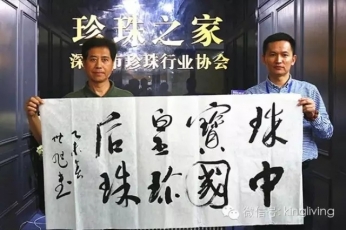 珍珠之家
深圳市珍珠行业协会
珠寶皇后
中國珍珠
乙未
微信号: kingliving